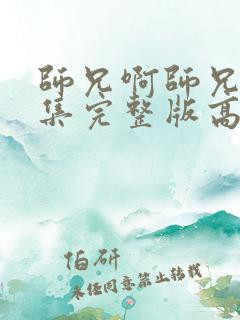 師兄啊師兄
集完整版高
伯研
未经同意禁止转载